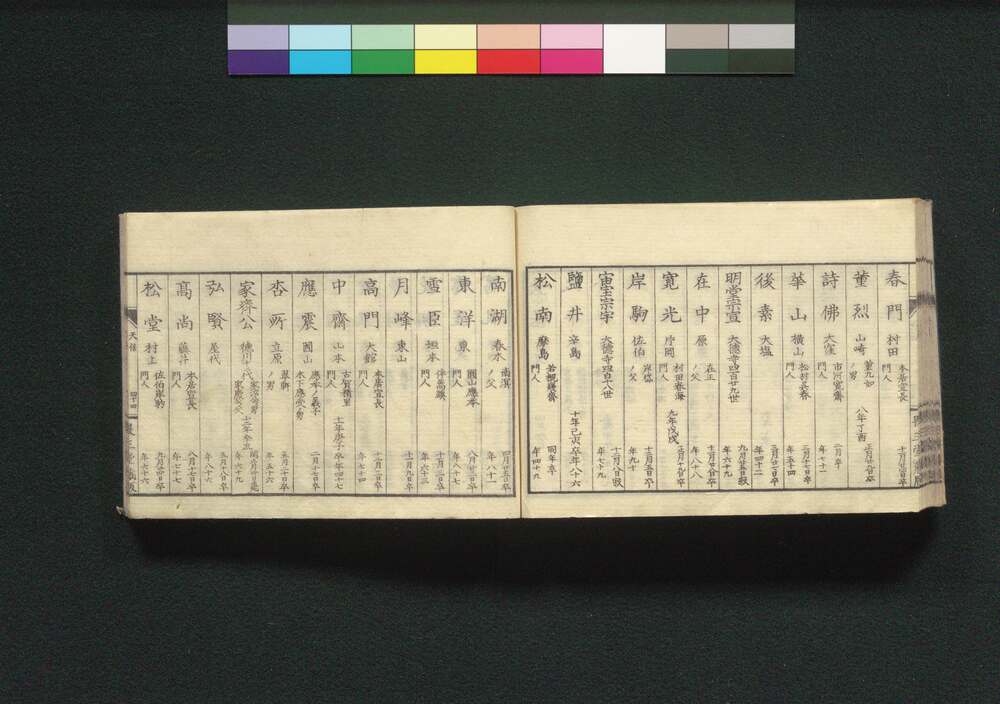 春門 村田 本居宣長門人 十一月廿四日卒
董烈 山崎 董九如ノ男 八年丁酉 正月廿八日卒
詩佛 大窪 市河寛齋門人 二月卒 年七十一
華山 橫山 松村景春門人 三月十七日卒 年五十四
後素 大塩 三月廿七日卒 年四十二
明堂宗宣 大德寺四百廿九世 九月廿五日寂 年六十九
在中 原 在正ノ父 十一月廿五日卒 年八十八
寛光 片岡 村田春海門人 九年戊戌 五月十日卒
岸駒 佐伯 岸岱ノ父 十二月五日卒 年九十
宙宝宗宇 大德寺四百十八世 十二月八日寂 年七十九
鹽井 辛島 十年己亥 卒年八十六
松南 摩島 若槻幾齋門人 同年卒 年四十九
南湖 春木 南溟ノ父 四月廿五日卒 年八十一
東洋 東 圓山應擧門人 八月廿三日卒 年八十七
雪臣 垣本 伴蒿蹊門人 十月二日卒 年六十三
月峰 東山 十一月九日卒
高門 大館 本居宣長門人 十二月二日卒 年七十四
中齊 山本 古賀精里門人 十一年庚子 卒年四十七
應震 國山 應擧ノ義子 木下應受ノ男 二月十七日卒
杏所 立原 翠軒ノ男 五月二十日卒 年五十六
家齊公 德川十一代 十二年辛丑 年六十九
弘賢 屋代 五月十八日卒 年八十六
高尚 藤井 本居宣長門人 八月十七日卒 年七十七
松堂 村上 佐伯岸駒門人 九月四日卒 年六十六
天保
四十四